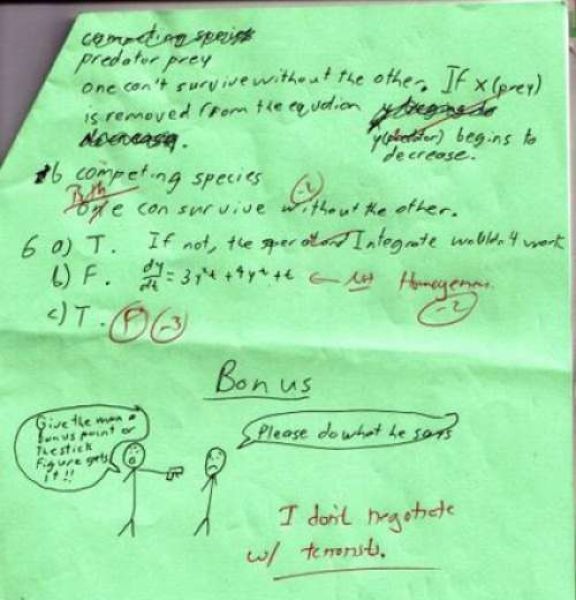 competing species
predator prey
one can't survive without the other. If x (prey)
is removed from the equation
y(predator) begins to
decrease.
b competing species
Both
-2
one can survive without the other.
6 a) T. If not, the operation Integrate wouldn't work
b) F. dy/dt = 3y²t + 4y² + t ← not Homogenous.
-2
c) T. F -3
Bonus
Give the man a
bonus point or
the stick
figure gets
it!!
Please do what he says
I don't negotiate
w/ terrorists.